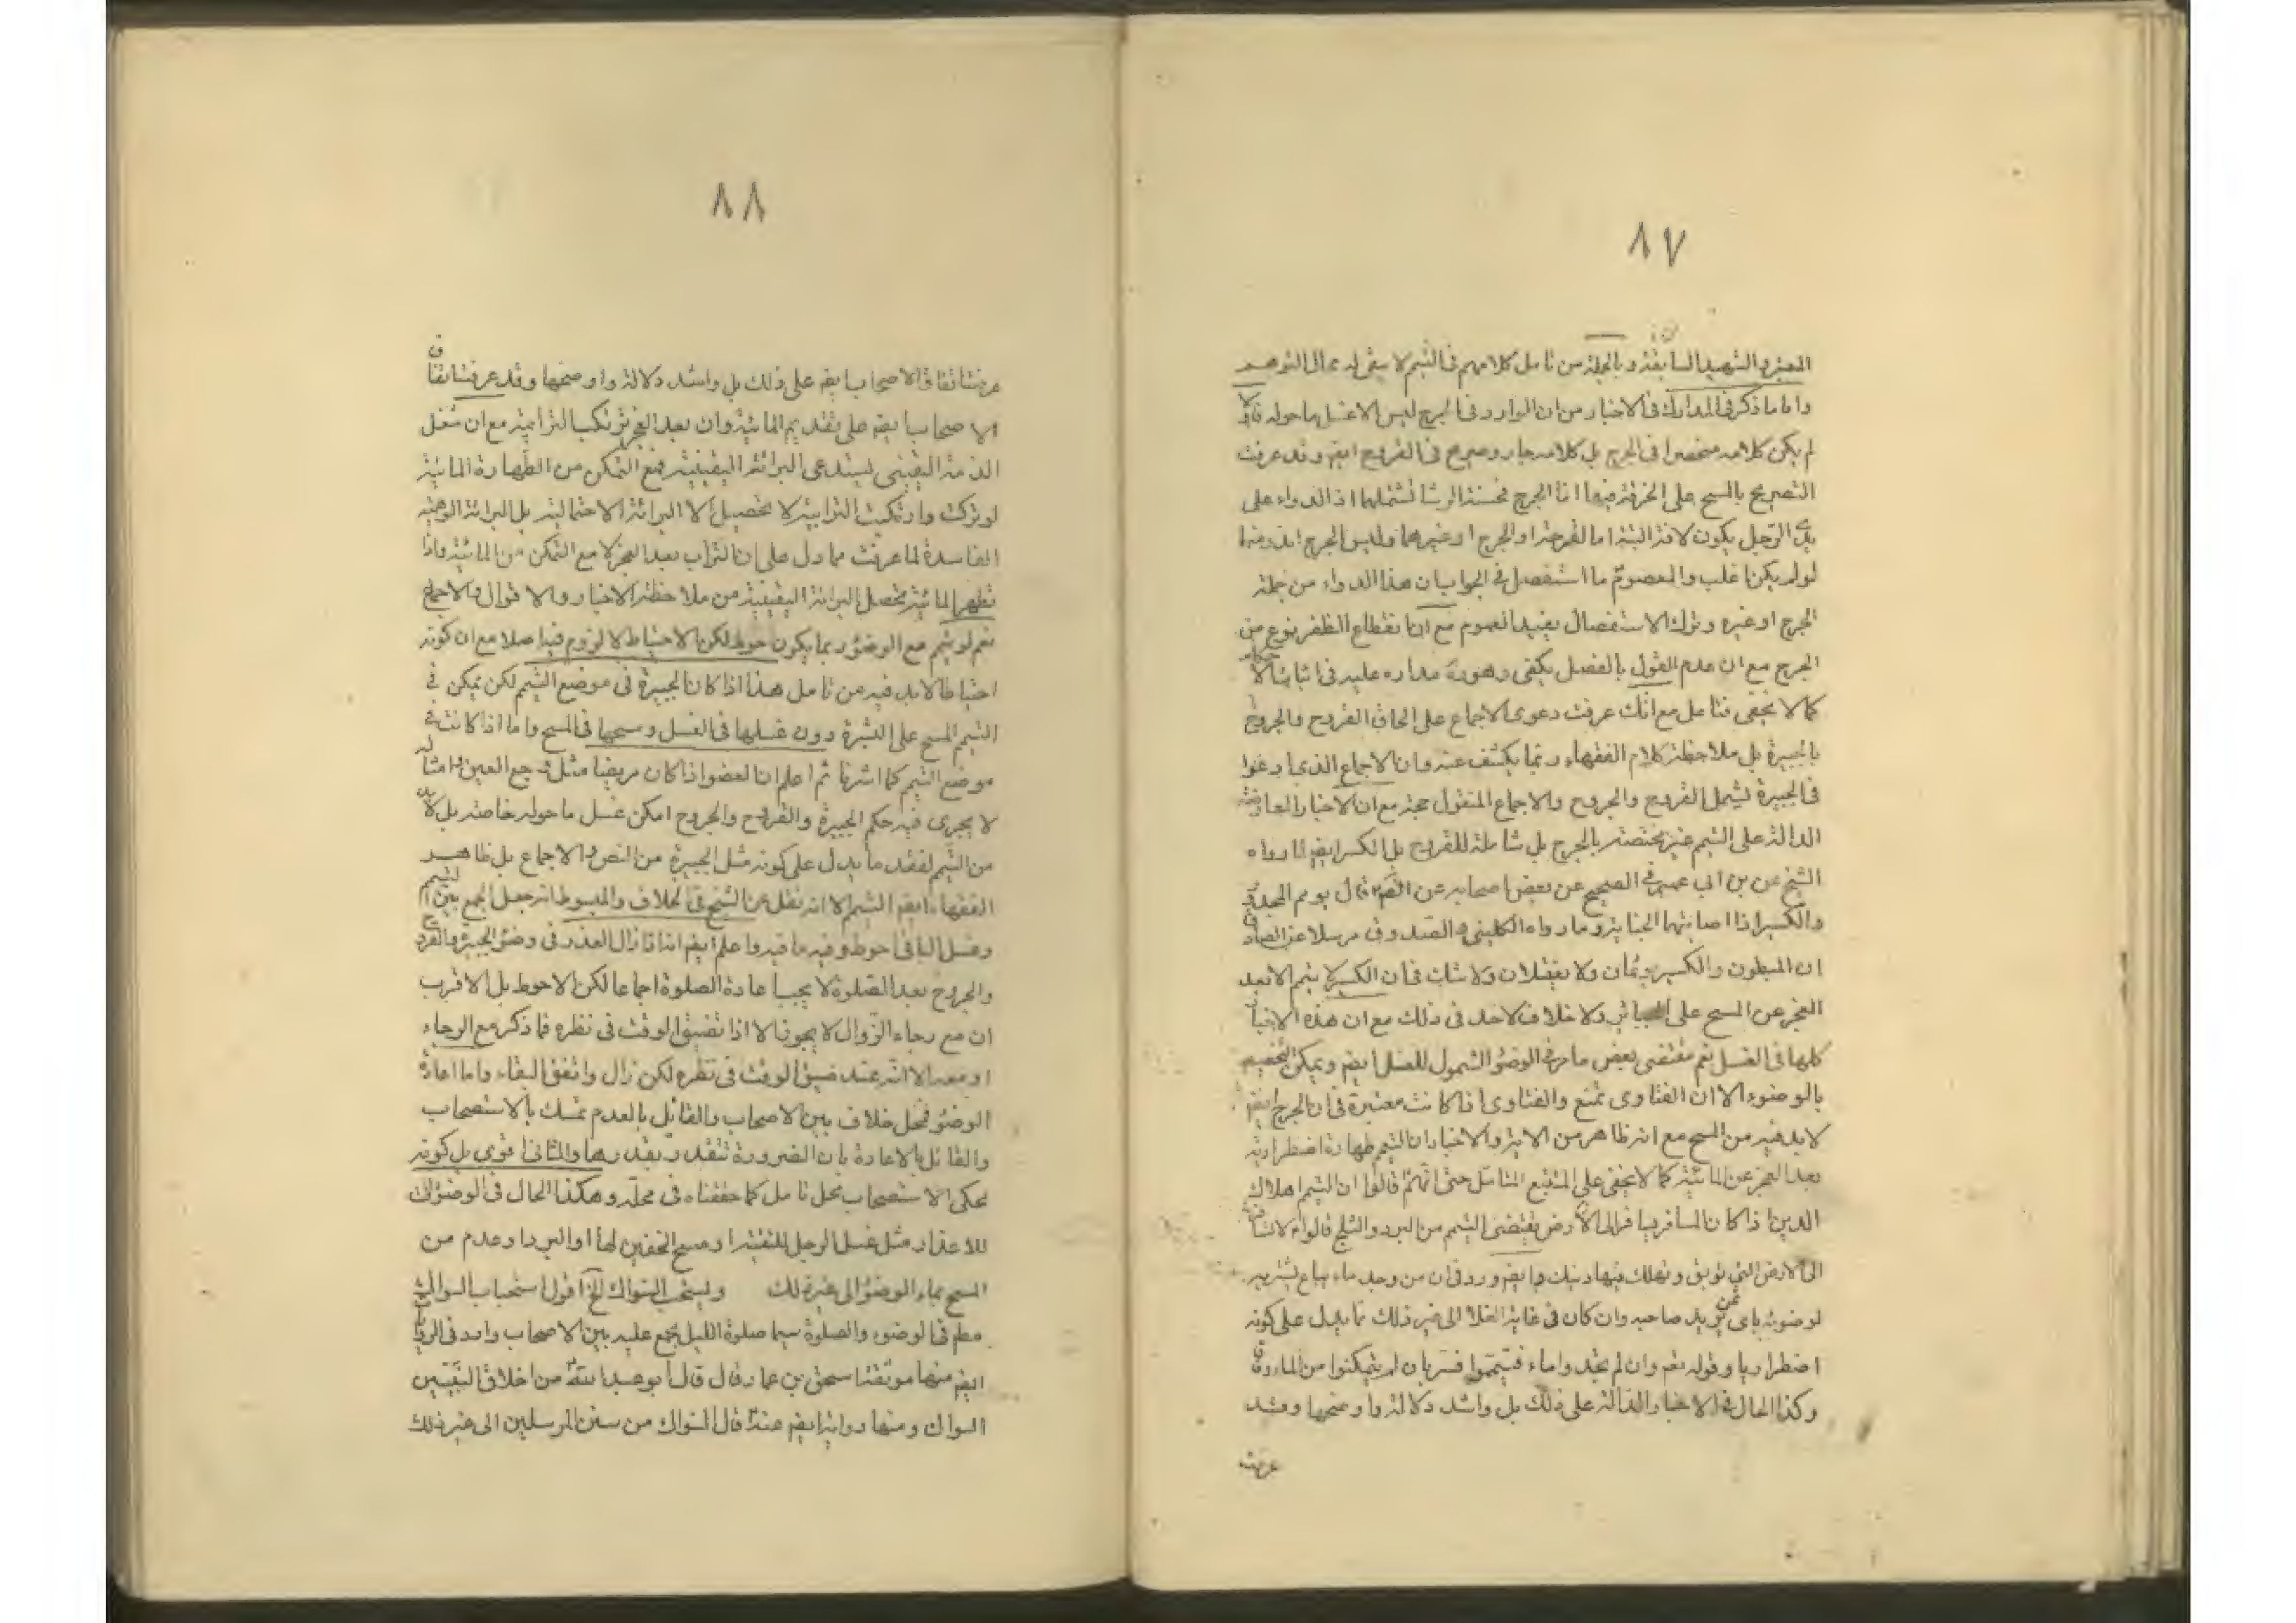 ٨٧
المعتبر والشهيد السابقة وبالجملة من تامل كلامهم فى التيمم لا يبقى له مجال التوهم
واما ما ذكر فى المدارك فى الاخبار من ان الوارد فى الجرح ليس الا غسل ما حوله فلا
لم يكن كلامه منحصرا فى الجرح بل كلامه جار وصريح فى القروح ايضا وقد عرفت
التصريح بالمسح على الخرقة فيها اما الجرح فحسنة الوشا تشملها اذ الدواء على
يدى الرجل يكون لافة البتة اما القرحة او الجرح او غيرهما وليس الجرح اندر منها
لو لم يكن اغلب والمعصوم ما استفصل فى الجواب بان هذا الدواء من جملة
الجرح او غيره وترك الاستفصال يفيد العموم مع ان انقطاع الظفر نوع من
الجرح مع ان عدم القول بالفصل يكفى وهو مداره عليه فى اثبات الاحكام
كما لا يخفى فتامل مع انك عرفت دعوى الاجماع على الحاق القروح والجروح
بالجبيرة بل ملاحظة كلام الفقهاء ربما يكشف عنه وان الاجماع الذى ادعوا
فى الجبيرة يشمل القروح والجروح والاجماع المنقول حجة مع ان الاخبار
الدالة على التيمم غير مختصة بالجرح بل شاملة للقروح بل الكسر ايضا لما رواه
الشيخ عن بن ابى عمير فى الصحيح عن بعض اصحابه عن الصّ قال يومم المجدور
والكسير اذا اصابتهما الجنابة وما رواه الكلينى والصدوق مرسلا عن الصادق
ان المبطون والكسير يؤمان ولا يغتسلان ولا شك فى ان الكسير لا يتمم الا بعد
العجز عن المسح على الجبائر ولا خلاف لاحد فى ذلك مع ان هذه الاخبار
كلها فى الغسل نعم مقتضى بعض ما مر فى الوضوء الشمول للغسل ايضا ويمكن التخصيص
بالوضوء الا ان الفتاوى تمنع والفتاوى اذا كانت معتبرة فى ان الجرح ايضا
لابد فيه من المسح مع انه ظاهر من الاية والاخبار ان التيمم طهارة اضطرارية
بعد العجز عن المائية كما لا يخفى على المتتبع المتامل حتى انهم قالوا ان التيمم اهلاك
الدين اذا كان المسافر يسافر الى الارض يقتضى التيمم من البرد والثلج قالوا لا تسافر
الى الارض التى توبق وتهلك فيها دينك وايضا ورد فى ان من وجد ماء يباع يشتريه
لوضوئه باى ثمن يريد صاحبه وان كان فى غاية الغلا الى غير ذلك مما يدل على كونه
اضطراريا وقوله تعم وان لم تجدوا ماء فتيمموا فسر بان لم يتمكنوا من الماء
وكذا الحال فى الاخبار الدالة على ذلك بل واشد دلالة واوضحها وقد
عرفت
٨٨
عرفت اتفاق الاصحاب ايضا على ذلك بل واشد دلالة واوضحها وقد عرفت اتفاق
الاصحاب ايضا على تقديم المائية وان بعد العجز ترتكب الترابية مع ان شغل
الذمة اليقينى يستدعى البرائة اليقينية فمع التمكن من الطهارة المائية
لو تركت وارتكبت الترابية لا تحصيل الا البرائة الاحتمالية بل البرائة الوهمية
الفاسدة لما عرفت مما دل على ان التراب بعد العجز لا مع التمكن من المائية واذا
تطهر المائية تحصل البرائة اليقينية من ملاحظة الاخبار والاقوال والاجماع
نعم لو تيمم مع الوضوء ربما يكون احوط لكن الاحتياط لا لزوم فيه اصلا مع ان كونه
احتياطا لابد فيه من تامل هذا اذا كان الجبيرة فى موضع التيمم لكن يمكن فى
التيمم المسح على البشرة دون غسلها فى الغسل ومسحها فى المسح واما اذا كانت فى
موضع التيمم كما اشرنا ثم اعلم ان العضو اذا كان مريضا مثل وجع العين وامثاله
لا يجرى فيه حكم الجبيرة والقروح والجروح امكن غسل ما حوله خاصة بل لابد
من التيمم لفقد ما يدل على كونه مثل الجبيرة من النص والاجماع بل ظاهر
الفقهاء ايضا التيمم الا انه نقل عن الشيخ فى الخلاف والمبسوط انه جعل الجمع بين التيمم
وغسل الباقى احوط وفيه ما فيه واعلم ايضا اذا زال العذر فى وضوء الجبيرة والقروح
والجروح بعد الصلوة لا يجب اعادة الصلوة اجماعا لكن الاحوط بل الاقرب
ان مع رجاء الزوال لا يجوز الا اذا تضيق الوقت فى نظره فما ذكر مع الرجاء
او معه الا انه عند ضيق الوقت فى نظره لكن زال واتفق البقاء واما اعادة
الوضوء فمحل خلاف بين الاصحاب والقائل بالعدم تمسك بالاستصحاب
والقائل بالاعادة بان الضرورة تتقدر بقدرها والثانى اقوى بل كونه
محكى الاستصحاب محل تامل كما حققناه فى محله وهكذا الحال فى الوضوءات
للاعذار مثل غسل الرجل للتقية او مسح الخفين لها او البرد او عدم من
المسح بماء الوضوء الى غير ذلك ويستحب السواك الخ اقول استحباب السواك
مطم فى الوضوء والصلوة سيما صلوة الليل مجمع عليه بين الاصحاب وارد فى الروايات
ايضا منها موثقة اسحق بن عمار قال قال ابو عبد الله من اخلاق النبيين
السواك ومنها رواية ايضا عنه قال السواك من سنن المرسلين الى غير ذلك